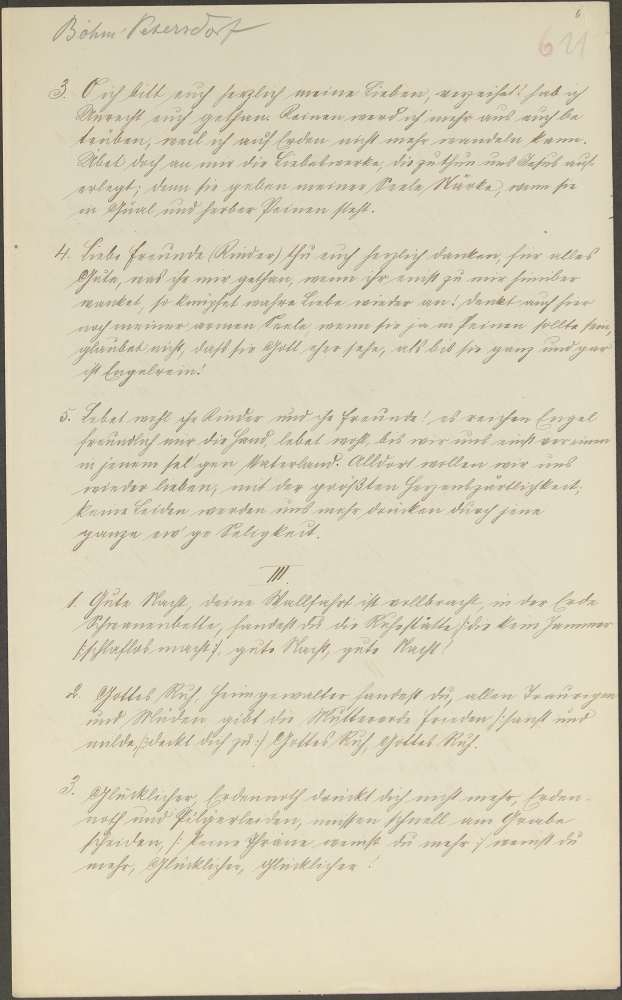 6
Böhm-Petersdorf
611
3. O ich bitt euch herzlich meine Lieben, verzeihet! hab ich
Unrecht euch gethan. Keinen werd ich mehr aus euch be
trüben, weil ich auf Erden nicht mehr wandeln kann.
Übet doch an mir die Liebeswerke, die zu thun uns Jesus auf-
erlegt; denn sie geben meiner Seele Stärke, wenn sie
in Qual und herber Peinen steht.
4. Liebe Freunde (Kinder) thu euch herzlich danken, für alles
Gute, was ihr mir gethan, wenn ihr einst zu mir hinüber
wanket, so knüpfet wahre Liebe wieder an! denkt auch hier
noch meiner armen Seele wenn sie ja in Peinen sollte sein,
glaubet nicht, daß sie Gott eher sehe, als bis sie ganz und gar
ist Engelrein!
5. Lebet wohl ihr Kinder und ihr Freunde! es reichen Engel
freundlich mir die Hand, lebet wohl, bis wir uns einst vereinen
in jenem sel'gen Vaterland. Alldort wollen wir uns
wieder lieben, mit der größten Herzenszärtlichkeit,
keine Leiden werden uns mehr drücken durch jene
ganze ew'ge Seligkeit.
III.
1. Gute Nacht, deine Wallfahrt ist vollbracht, in der Erde
fandest du die Ruhestätte /: die kein Jammer
/: schlaflos macht :/, gute Nacht, gute Nacht!
2. Gottes Ruh, fandest du, allen Traurigen
und Müden gibt die Muttererde Frieden /: sanft und
milde, /: deckt dich zu :/ Gottes Ruh, Gottes Ruh.
3. Glücklicher, Erdennoth drückt dich nicht mehr, Erden-
noth und Pilgerleiden, müssen schnell am Grabe
scheiden, /: keine Thräne weinst du mehr :/ weinst du
mehr, Glücklicher, Glücklicher!